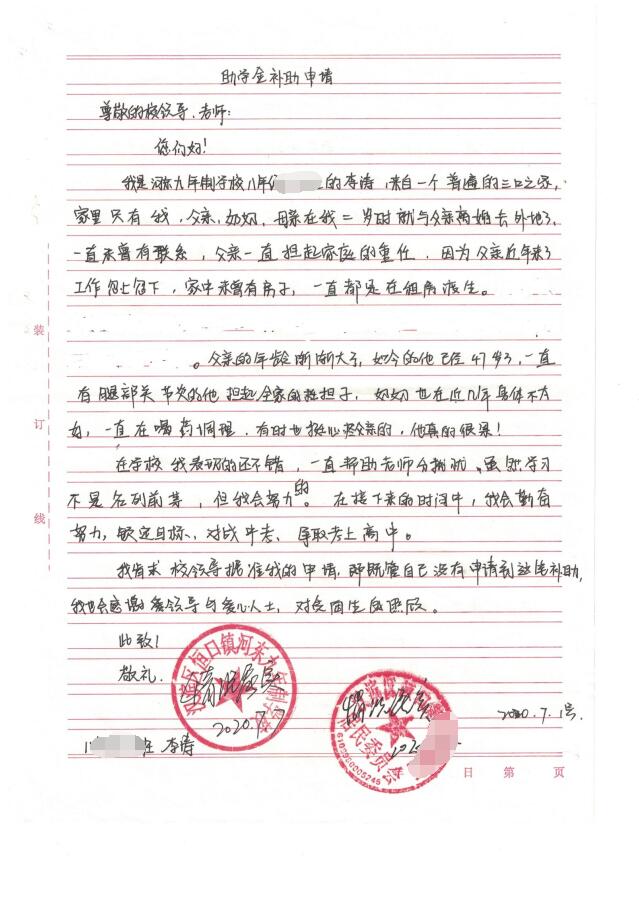 助学金补助申请
尊敬的校领导、老师:
您们好!
我是河东九年制学校八年级 的李涛,来自一个普通的三口之家,
家里只有我,父亲,奶奶,母亲在我二岁时就与父亲离婚去外地了,
一直未曾有联系,父亲一直担起家庭的重任.因为父亲近年来
工作 ,家中未曾有房子,一直都是在租房 生。
。父亲的年龄渐渐大了,如今的他已经47岁了,一直
有腿部关节炎的他担起全家的 担子,奶奶也在近几年身体不太
好,一直在喝药调理.有时也挺心疼父亲的,他真的很累!
在学校我表现的还不错,一直帮助老师分担 .虽然学习
不是名列前茅,但我会努力的。在接下来的时间中,我会勤奋
努力,锁定目标,对战中考、争取考上高中。
我 求校领导批准我的申请,即 自己没有申请到这笔补助,
我也会感谢 领导与爱心人士,对 生的 。
此致!
敬礼.
区恒口镇河东九年制学校
情况属实
2020.7.7
情况属实
民委员会
6109990005245
2020.7.1号.
李涛
装
订
线
年 日 第 页